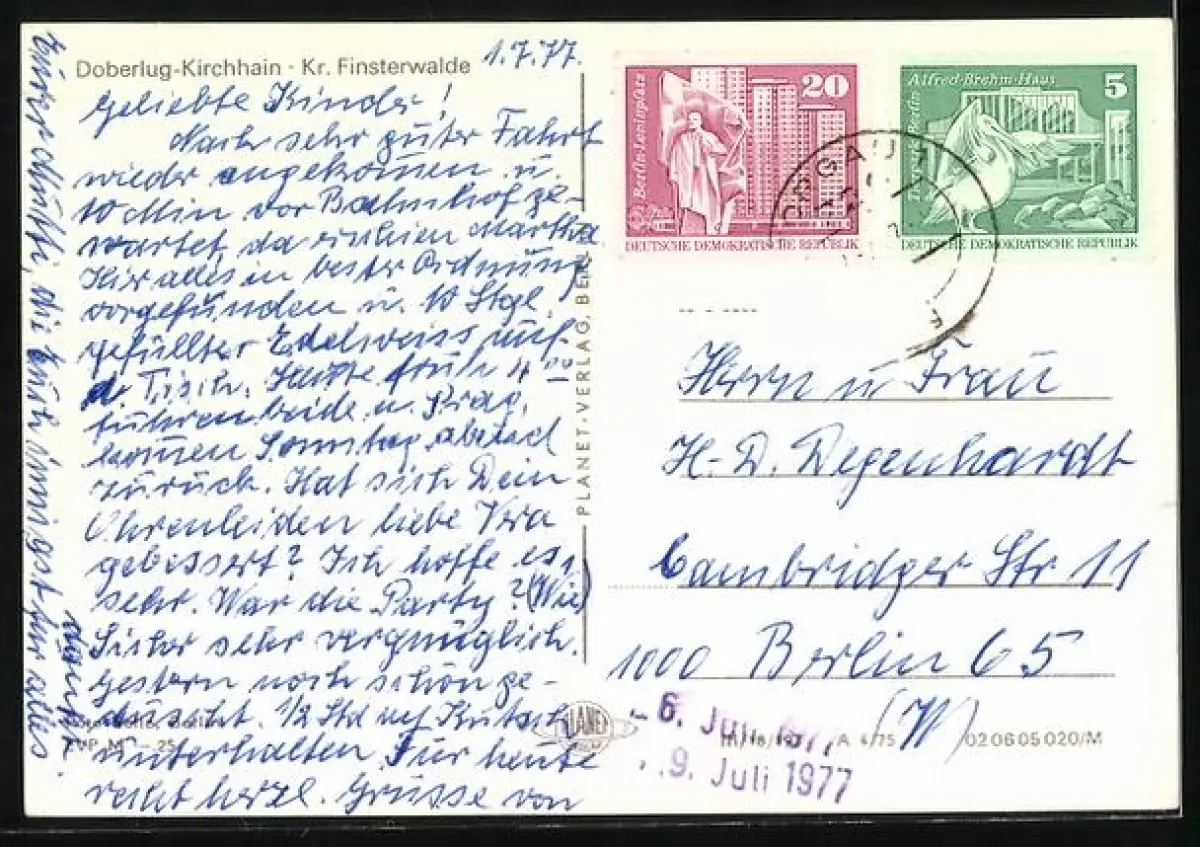 Doberlug-Kirchhain · Kr. Finsterwalde
1.7.77.
Geliebte Kinder!
Nach sehr guter Fahrt
wieder angekommen u.
10 Min vor Bahnhof ge-
wartet, da erschien Martha
Hier alles in bester Ordnung
vorgefunden u. 10 Stgl.
gefüllter Edelweiss auf
d. Tisch. Heute früh 4 00
fuhren beide n. Prag,
kommen Sonntag abend
zurück. Hat sich Dein
Ohrenleiden liebe
gebessert? Ich hoffe es
sehr. War die Party? (Wie)
Sicher sehr vergnüglich.
Gestern noch schön ge-
duscht. 1/2 Std
unterhalten. Für heute
recht herzl. Grüsse von
Danke innigst für alles.
PLANET-VERLAG, BERLIN
PLANET
02 06 05 020/M
A 4/75
20
Berlin-Leninplatz
DEUTSCHE DEMOKRATISCHE REPUBLIK
Alfred-Brehm-Haus
5
Tierpark Berlin
DEUTSCHE DEMOKRATISCHE REPUBLIK
Herrn u Frau
H.-D. Degenhardt
Cambridger Str 11
1000 Berlin 65
(W)
- 6. Juli 1977
- 9. Juli 1977